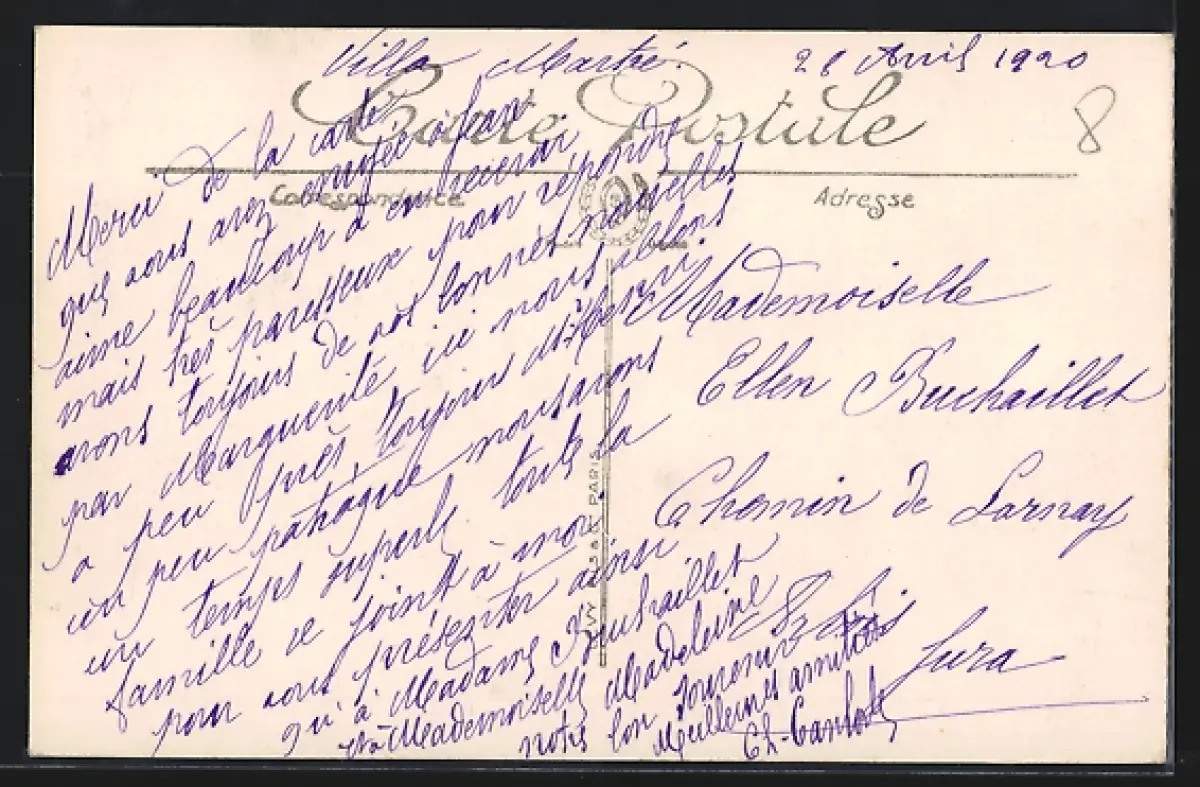 Villa Martré. 28 Avril 1920
8
Carte Postale
Correspondance
Adresse
Merci de la carte
que vous avez envoyée à Jean
aime beaucoup à en recevoir
mais très paresseux pour répondre
avons toujours de vos bonnes nouvelles
par Marguerite ici nous allons
a peu près, toujours Henri
un peu patraque nous avons
un temps superbe toute la
famille se joint à moi
pour vous présenter ainsi
qu'à Madame Buchaillet
et à Mademoiselle Madeleine
notre bon souvenir
Meilleures amitiés
Mademoiselle
Ellen Buchaillet
Chemin de Larnay
Jura
PARIS